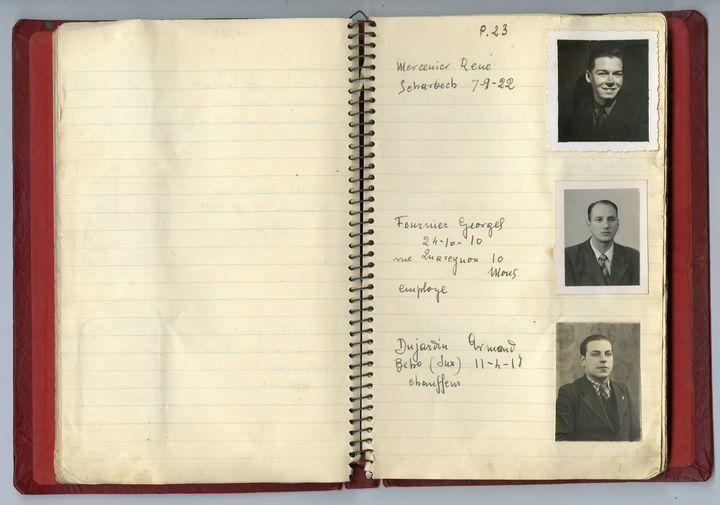 P.23
Mercenier René
Scharbeck 7-9-22
Fournier Georges
24-10-10
rue Quaregnon 10
Mons
employe
Dujardin Armand
(Lux) 11-4-
chauffeur